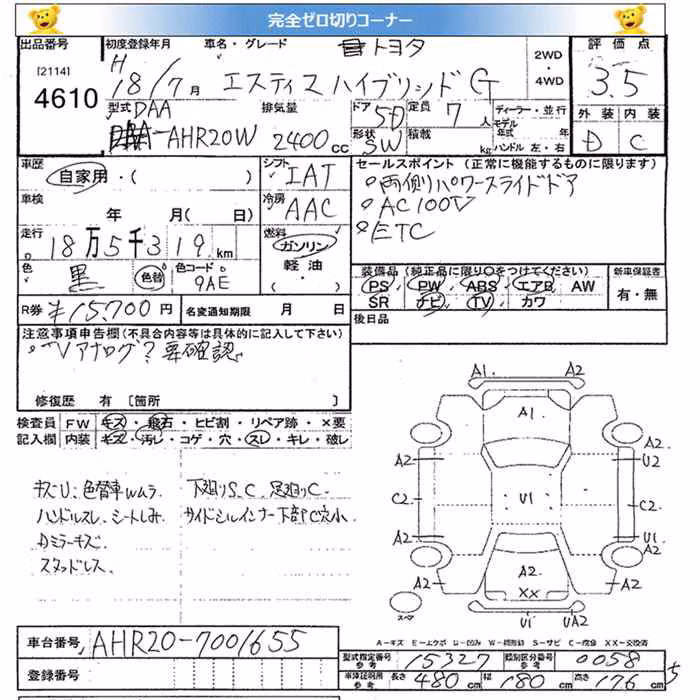 完全ゼロ切りコーナー
出品番号 初度登録年月 車名・グレード トヨタ 2WD・4WD 評価点
[2114] 4610 H 18/7月 エスティマハイブリッドG 3.5
型式 DAA 排気量 ドア 5D 定員 7人 ディーラー・並行 外装 内装
DAA-AHR20W 2400cc 形状 SW 積載 kg モデル年式 年式 ハンドル 左・右 D C
車歴 自家用・( ) シフト IAT セールスポイント (正常に機能するものに限ります)
車検 年 月(日) 冷房 AAC 両側パワースライドドア
AC100V
走行 18万5千319km 燃料 ガソリン・軽油・ ETC
色 黒 色替 色コード 9AE 装備品(純正品に限り○をつけてください) 新車保証書
PS PW ABS エアB AW 有・無
SR ナビ TV カワ
R券 ¥15,700円 名変通知期限 月 日 後日品
注意事項申告欄(不具合内容等は具体的に記入して下さい)
TVアナログ?要確認
修復歴 有 [箇所 ]
検査員 FW キズ・飛石・ヒビ割・リペア跡・×要
記入欄 内装 キズ・汚レ・コゲ・穴・スレ・キレ・破レ
キズU、色替車Wムラ 下廻りS、C、足廻りC
ハンドルスレ、シートしみ サイドシルインナー下部C穴小
Dミラーキズ
スタッドレス
A1 A2
A1
A2
A2 U2
C2 U1 C2
A2 U1
A2 A2 A2
XX
スペア U1 UA2
A-キズ E-エクボ U-凹み W-補修跡 S-サビ C-腐蝕 XX-交換済
車台番号 AHR20-7001655
登録番号
型式指定番号 参考 15327 類別区分番号 参考 0058
車庫証明用 参考 長さ 480cm 幅 180cm 高さ 176cm